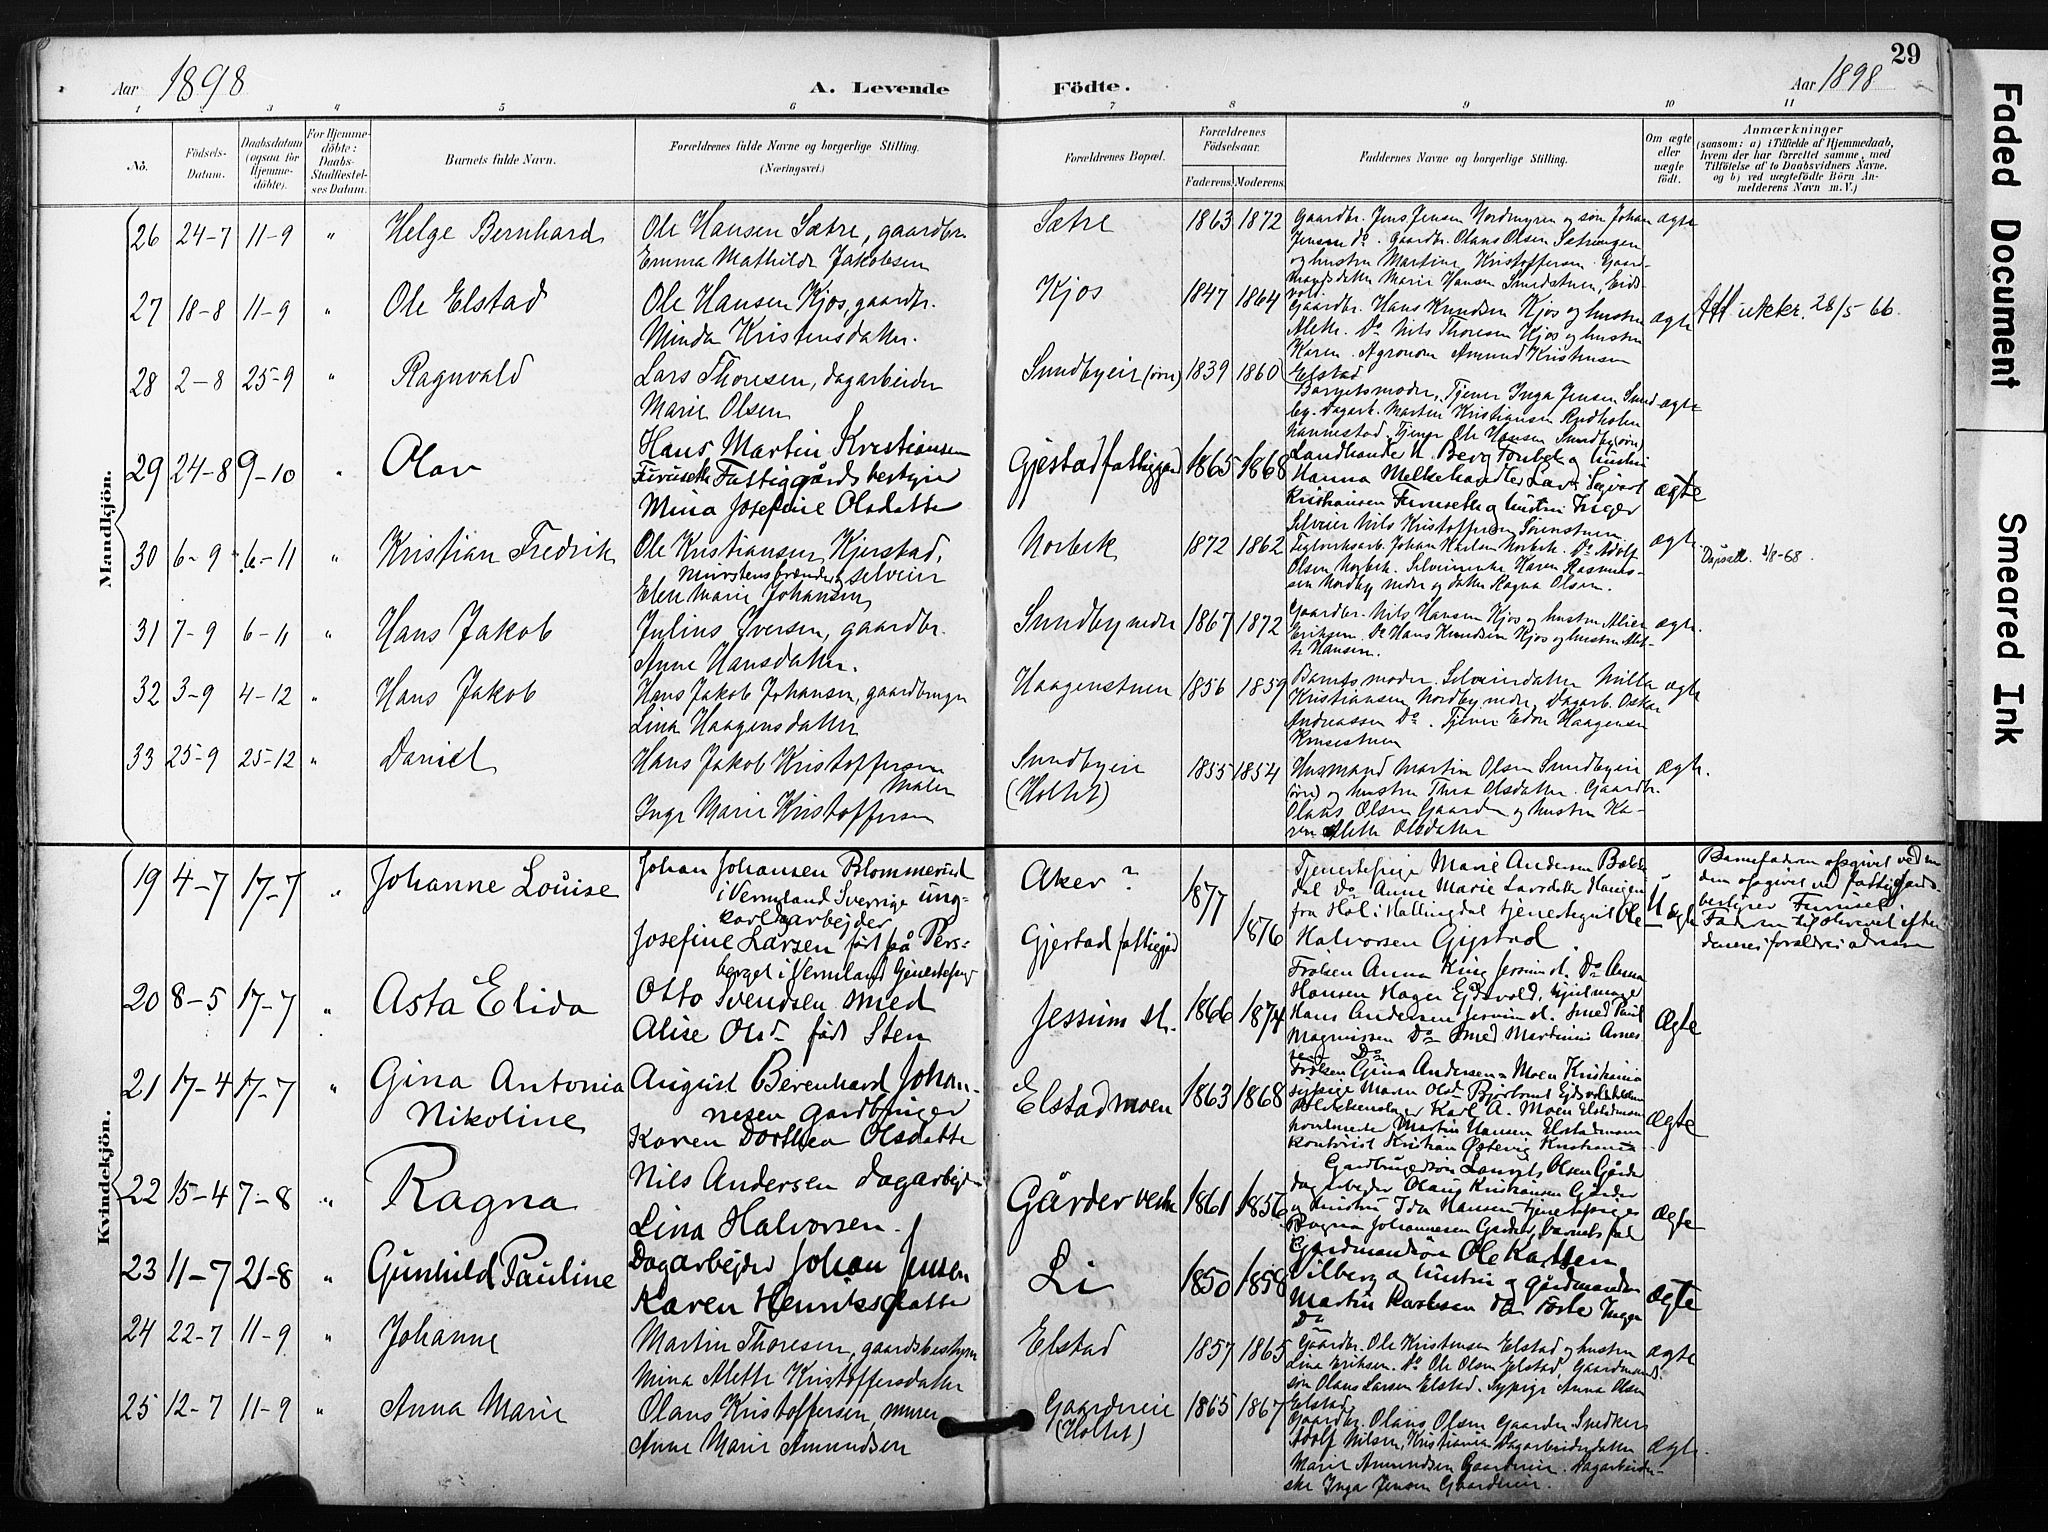 29
Aar 1898 A. Levende Födte. Aar 1898
1 2 3 4 5 6 7 8 9 10 11
No.
Födsels-
Datum.
Daabsdatum
(ogsaa for
Hjemme-
döbte).
For Hjemme-
döbte:
Daabs-
Stadfæstel-
ses Datum.
Barnets fulde Navn.
Forældrenes fulde Navne og borgerlige Stilling.
(Næringsvei.)
Forældrenes Bopæl.
Forældrenes
Födselsaar.
Faderens. Moderens.
Faddernes Navne og borgerlige Stilling.
Om ægte
eller
uægte
födt.
Anmærkninger
(sansom: a) i Tilfælde af Hjemmedaab,
hvem der har forrettet samme, med
Tilföielse af to Daabsvidners Navne.
og b) ved uægtefödte Börn An-
melderens Navn m. V.)
Mandkjön.
26 24-7 11-9 " Helge Bernhard
Ole Hansen Sætre, gaardbr.
Emma Mathilde Jakobsen
Sætre 1863 1872
Gaardbr. Jens Jensen Nordmyren og søn Johan
Jensen Do. Gaardbr. Olaus Olsen
og hustru Martine Kristoffersen. Gaard-
mandsdatter Marie Hansen
ægte
27 18-8 11-9 " Ole Elstad
Ole Hansen Kjos, gaardbr.
Minda Kristensdatter.
Kjos 1847 1864
Gaardbr. Hans Knudsen Kjos og hustru
Alethe. Do Nils Thoresen Kjos og hustru
Karen. Agronom Amund Kristensen
Elstad
ægte
utskr. 26/5 66.
28 2-8 25-9 " Ragnvald
Lars Thoresen, dagarbeider
Marie Olsen
Sundbyeie (øvre) 1839 1860
Barnets moder, Tjener Inga Jensen Sund-
by. Dagarb. Martin Kristiansen
Nannestad. Tjener Ole Hansen Sundby (øvre)
ægte
29 24-8 9-10 " Olav
Hans Martin Kristiansen
Furuseth Fattiggårdsbestyrer
Mina Josefine Olsdatter
Gjestad fattiggård 1865 1868
Landhandler N. Berg og hustru
Hanna Melkehandler Lars Sigvart
Kristiansen Furuseth og hustru Inger
ægte
30 6-9 6-11 " Kristian Fredrik
Ole Kristiansen Kjerstad,
Murstensbrænder, selveier
Elen Marie Johansen
Norbek 1872 1862
Selveier Nils Kristoffersen
Teglverksarb. Johan Karlsen Norbek. Do Adolf
Olsen Norbek. Selveierenke Karen Rasmus-
sen Nordby nedre og datter Ragna Olsen.
ægte
Dåpsatt. 1/8-68.
31 7-9 6-11 " Hans Jakob
Julius Iversen, gaardbr.
Anne Hansdatter.
Sundby nedre 1867 1872
Gaardbr. Nils Hansen Kjos og hustru
Eriksen. Do Hans Knudsen Kjos og hustru
Hansen.
ægte
32 3-9 4-12 " Hans Jakob
Hans Jakob Johansen, gaardbruger
Lina Haagensdatter
Haagenstuen 1856 1859
Barnets moder. Selveierdatter Milla
Kristiansen Nordby nedre, Dagarb. Oskar
Andreassen Do. Tjener Edvr Haagensen
ægte
33 25-9 25-12 " Daniel
Hans Jakob Kristoffersen
Maler
Inge Marie Kristoffersen
Sundbyeie
(Holtet)
1855 1854
Husmand Martin Olsen Sundbyeie
(øvre) og hustru Thea Olsdatter. Gaardbr.
Olaus Olsen Gaarder og hustru Ka-
ren Alette Olsdatter
ægte.
Kvindekjön.
19 4-7 17-7 " Johanne Louise
Johan Johansen Blommerud
i Vermland Sverrige ung-
karl dagarbejder
Josefine Larsen født på Pers-
berget i Vermland tjenestepige
Aker?
Gjestad fattiggd
1877
1876
Tjenestepige Marie Andersen
Do Anne Marie Larsdatter
fra Hol i Hallingdal tjenestegut Ole
Halvorsen Gjestad.
Uægte
Barnefaderen opgivet ved mo
deren opgivet ved fattiggårds-
bestyrer Furuset.
20 8-5 17-7 " Asta Elida
Otto Svendsen smed
Alise Olsd født Sten
Jessum st. 1866 1874
Frøken Anna King Jessum st. Do Anna
Hansen Hager Ejdsvold, hjulmager
Hans Andersen Jessum st. Smed Paul
Magnussen Do Smed Martinius Arnes-
sen Do
Ægte
21 17-4 17-7 " Gina Antonia
Nikoline
August Berenhard Johan-
nesen Gardbruger
Karen Dorthea Olsdatter
Elstadmoen 1863 1868
Frøken Gina Andersen Moen Kristiania
sypige Maren Olsd
Karl A. Moen Elstadmoen
Martin Hansen Elstadmoen
kontorist Kristian Østevig Kristiania
ægte
22 15-4 7-8 " Ragna
Nils Andersen dagarbejder
Lina Halvorsen.
Gårder vestre 1861 1856
Gardbrugersøn Laurits Olsen Gårder
dagarbeder Olaus Kristiansen Gårder
og hustru Ida Hansen tjenestepige
Ragna Johannesen Gårder, barnets fad
ægte
23 11-7 21-8 " Gunhild Pauline
Dagarbejder Johan Jensen
Karen Henriksdatter
Li 1850 1858
Gårdmandsøn Ole Karlsen
Vilberg og hustru og gårdmandsn
Martin Karlsen Do Inger
Do
ægte
24 22-7 11-9 " Johanne
Martin Thoresen, gaardsbestyrer
Mina Alette Kristoffersdatter
Elstad 1857 1865
Gaardbr. Ole Kristensen Elstad og hustru
Lina Eriksen. Do Ole Olsen Elstad, Gaardmand-
søn Olaus Larsen Elstad. Sypige Anna Olsen
Elstad
ægte
25 12-7 11-9 " Anna Marie
Olaus Kristoffersen, murer
Anne Marie Amundsen
Gaardereie
(Holtet)
1865 1867
Gaardbr. Olaus Olsen Gaarder Snedker
Adolf Nilsen, Kristiania Dagarbeiderdatter
Marie Amundsen Gaardereie. Dagarbeider-
ske Inga Jensen Gaardereie.
ægte.
Faded Document
Smeared Ink